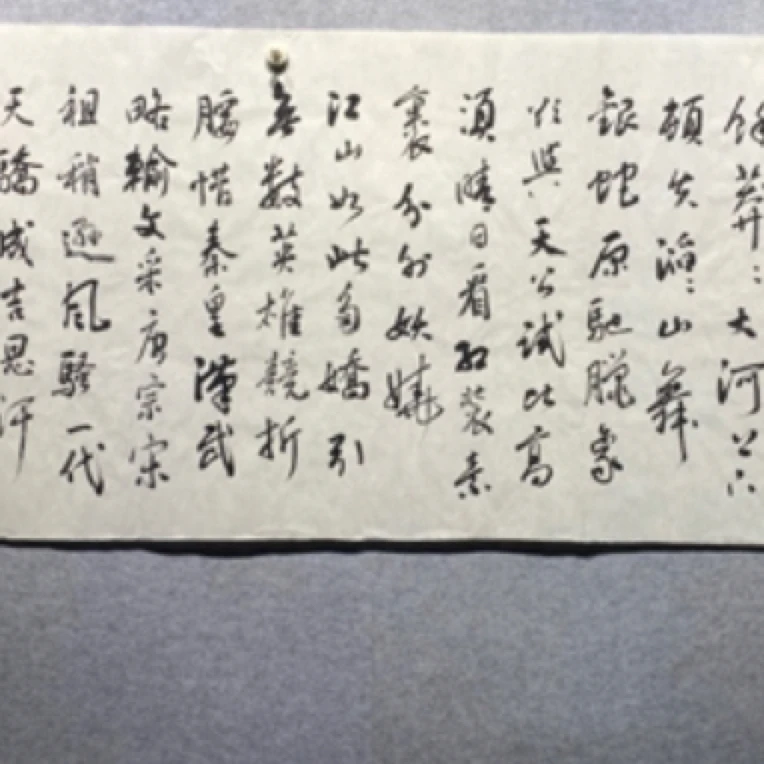 餘莽〻大河上下
頓失滔〻山舞
銀蛇原馳臘象
欲與天公試比高
須晴日看紅裝素
裹分外妖嬈
江山如此多嬌引
無數英雄競折
腰惜秦皇漢武
略輸文采唐宗宋
祖稍遜風騷一代
天驕成吉思汗